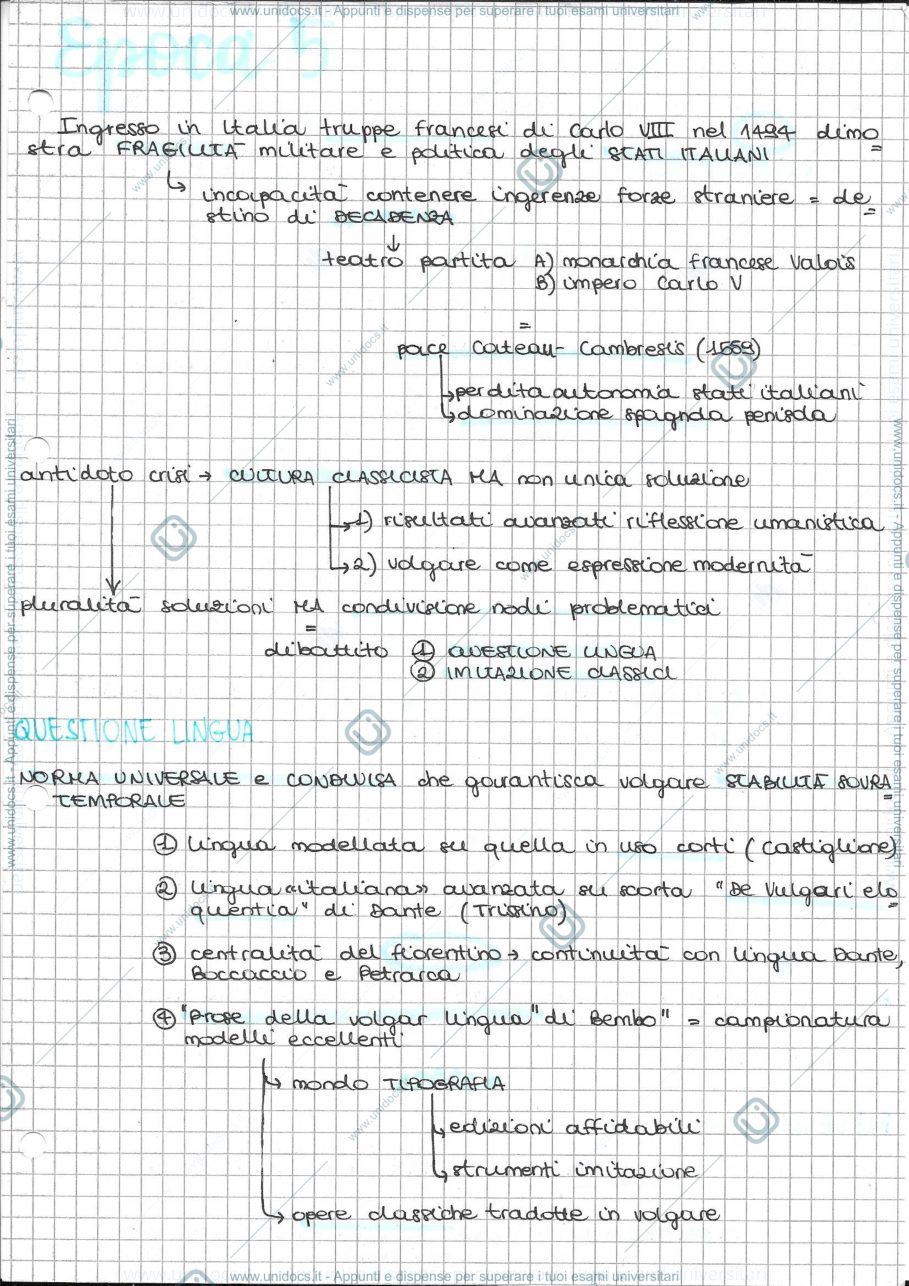 www.unidocs.it - Appunti e dispense per superare i tuoi esami universitari
Epoca 5
Ingresso in Italia truppe francesi di Carlo VIII nel 1494 dimo
stra FRAGILITÀ militare e politica degli STATI ITALIANI
↳ incapacità contenere ingerenze forze straniere = de
stino di DECADENZA
↓
teatro partita A) monarchia francese Valois
B) impero Carlo V
=
pace Cateau-Cambresis (1559)
↳ perdita autonomia stati italiani
↳ dominazione spagnola penisola
antidoto crisi → CULTURA CLASSICISTA MA non unica soluzione
↳ 1) risultati avanzati riflessione umanistica
↳ 2) volgare come espressione modernità
pluralità soluzioni MA condivisione nodi problematici
=
dibattito ① QUESTIONE LINGUA
② IMITAZIONE CLASSICI
QUESTIONE LINGUA
NORMA UNIVERSALE e CONDIVISA che garantisca volgare STABILITÀ SOVRA
TEMPORALE
① lingua modellata su quella in uso corti (Castiglione)
② lingua «italiana» avanzata su scorta "De Vulgari elo
quentia" di Dante (Trissino)
③ centralità del fiorentino → continuità con lingua Dante,
Boccaccio e Petrarca
④ "Prose della volgar lingua" di Bembo" = campionatura
modelli eccellenti
↳ mondo TIPOGRAFIA
↳ edizioni affidabili
↳ strumenti imitazione
↳ opere classiche tradotte in volgare
www.unidocs.it - Appunti e dispense per superare i tuoi esami universitari